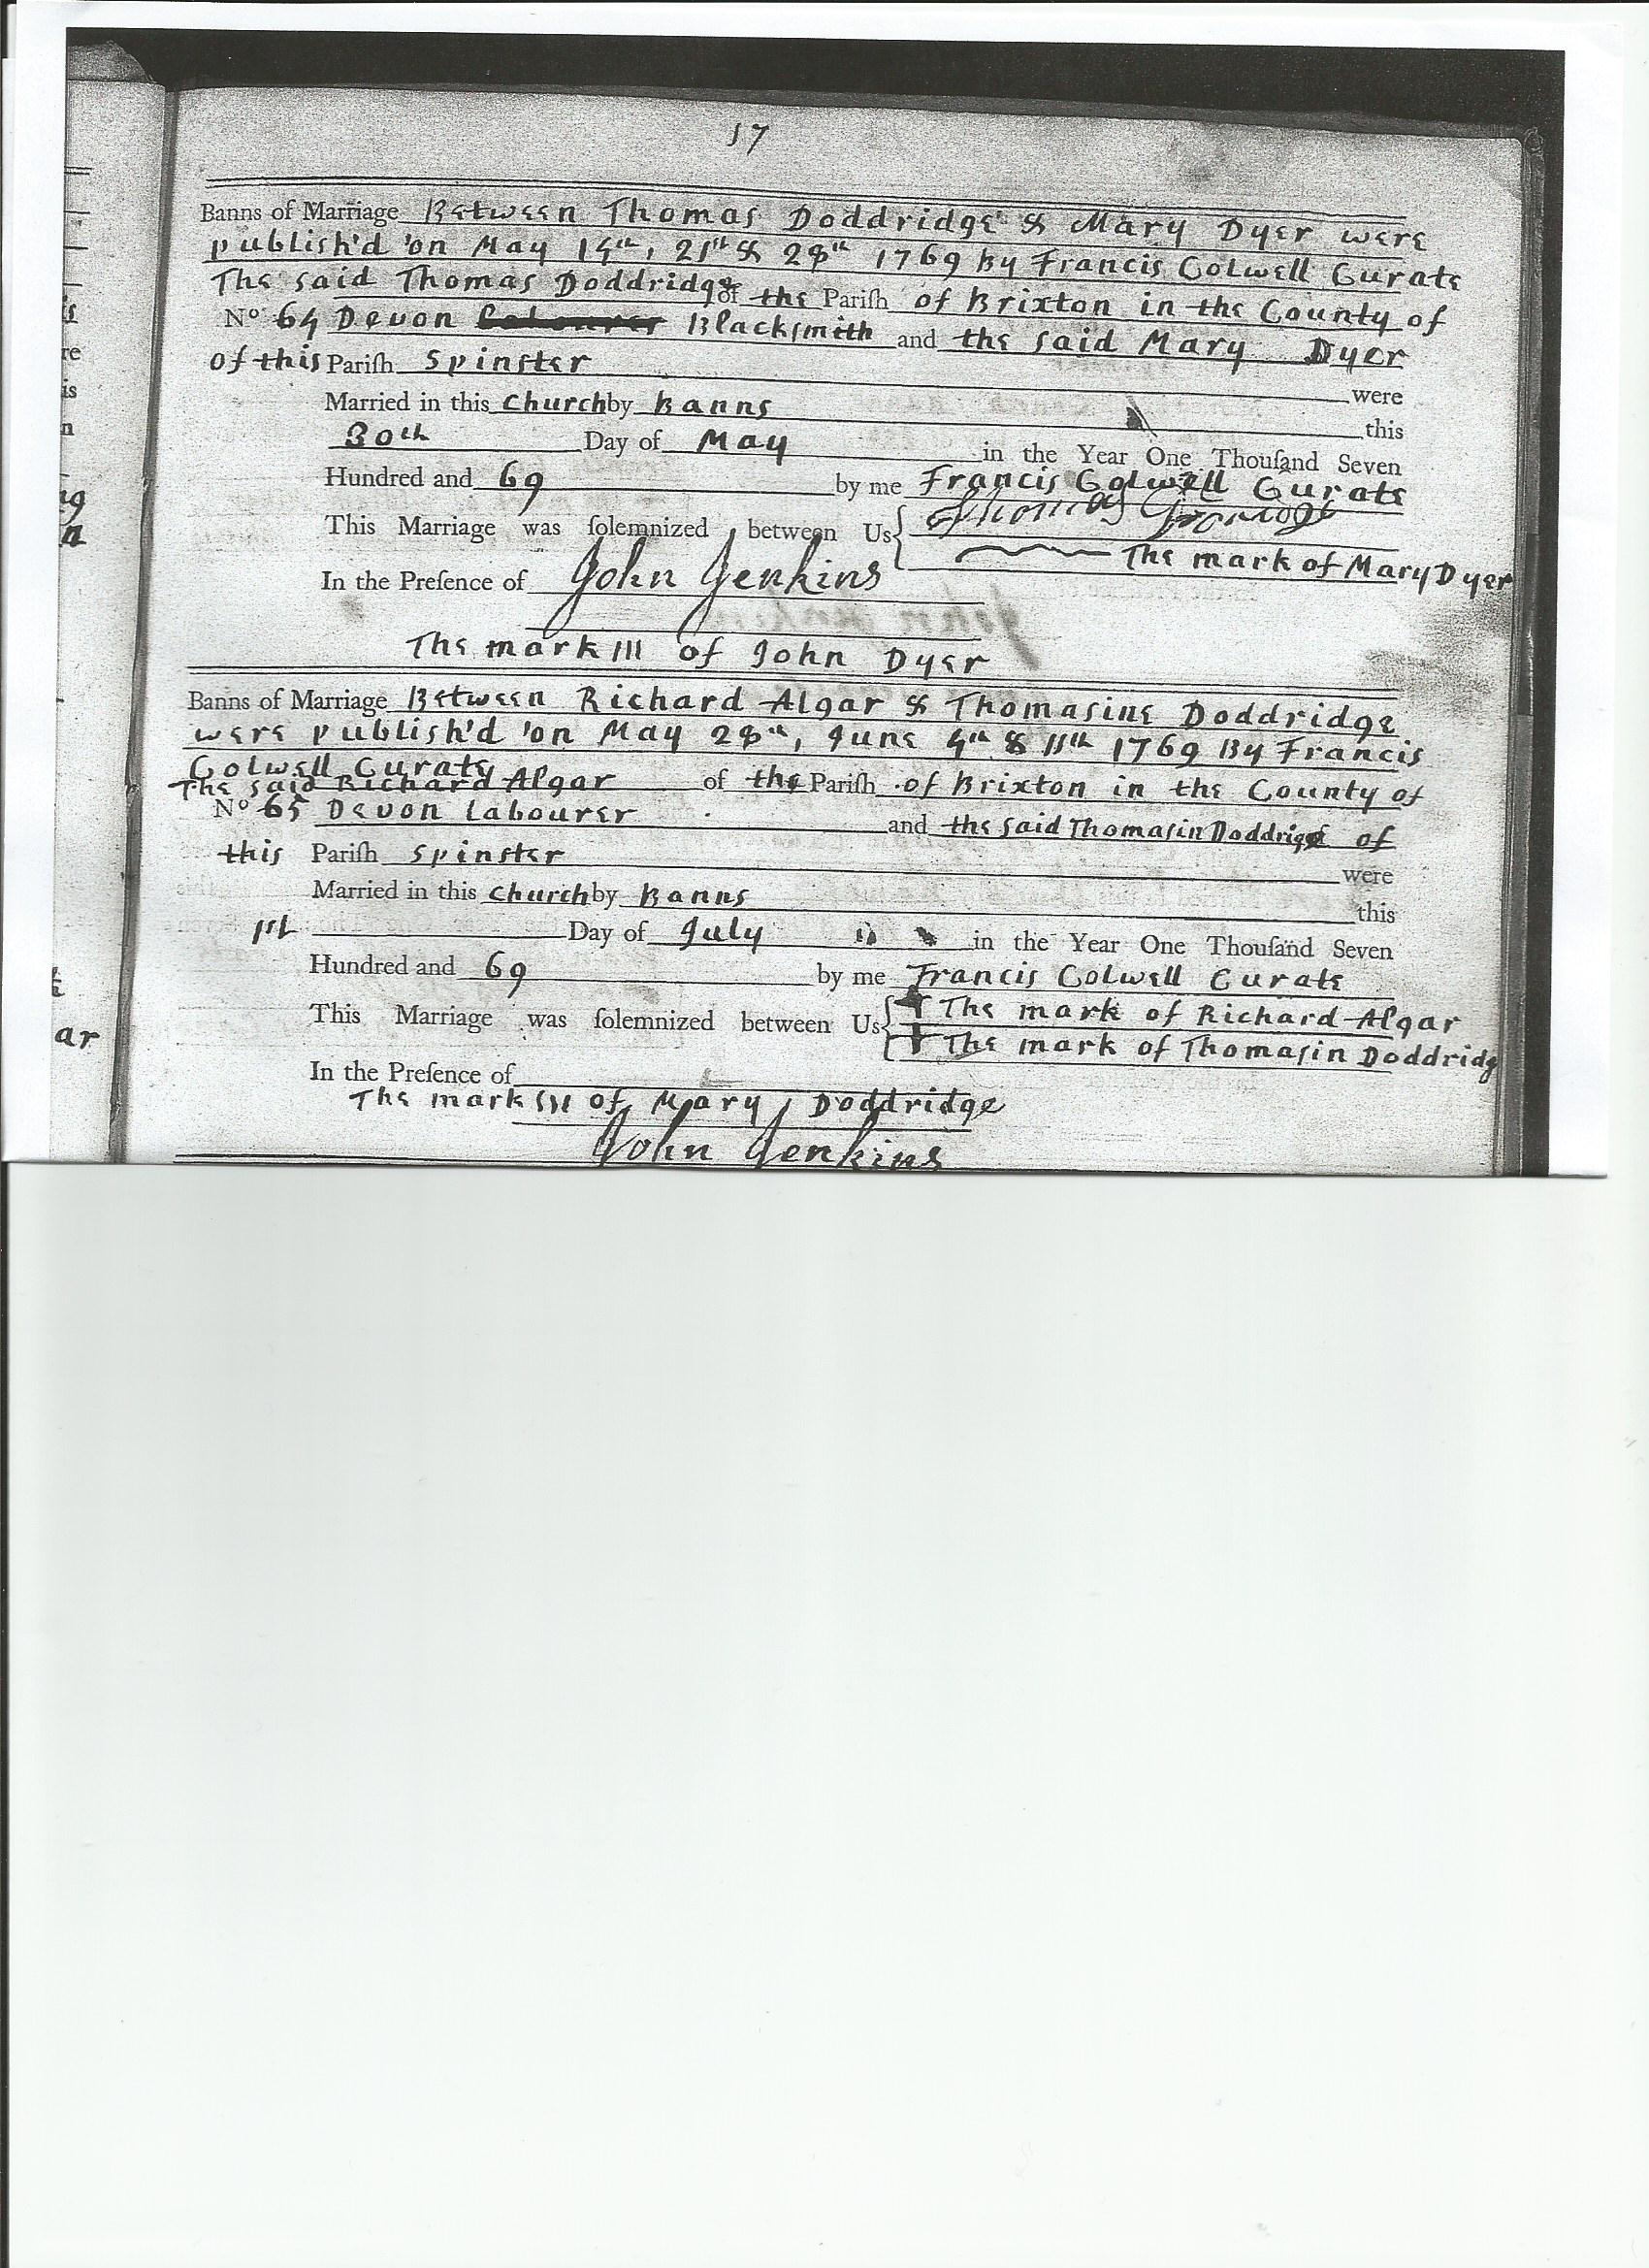 17
Banns of Marriage Between Thomas Doddridge & Mary Dyer were
publish'd on May 14th, 21st & 28th 1769 By Francis Colwell Curate
The said Thomas Doddridge of the Pariſh of Brixton in the County of
No 64 Devon Labourer Blackſmith and the ſaid Mary Dyer
of this Pariſh Spinſter were
Married in this Church by Banns this
30th Day of May in the Year One Thouſand Seven
Hundred and 69 by me Francis Colwell Curate
This Marriage was ſolemnized between Us Thomas
The mark of Mary Dyer
In the Preſence of John Jenkins
The mark III of John Dyer
Banns of Marriage Between Richard Algar & Thomasine Doddridge
were publish'd on May 28th, June 4th & 11th 1769 By Francis
Colwell Curate
The said Richard Algar of the Pariſh of Brixton in the County of
No 65 Devon Labourer and the ſaid Thomaſin Doddridge of
this Pariſh Spinſter were
Married in this Church by Banns this
1st Day of July in the Year One Thouſand Seven
Hundred and 69 by me Francis Colwell Curate
This Marriage was ſolemnized between Us The mark of Richard Algar
The mark of Thomaſin Doddridg
In the Preſence of
The mark III of Mary Doddridge
John Jenkins
is
re
is
n
ng
n
ar